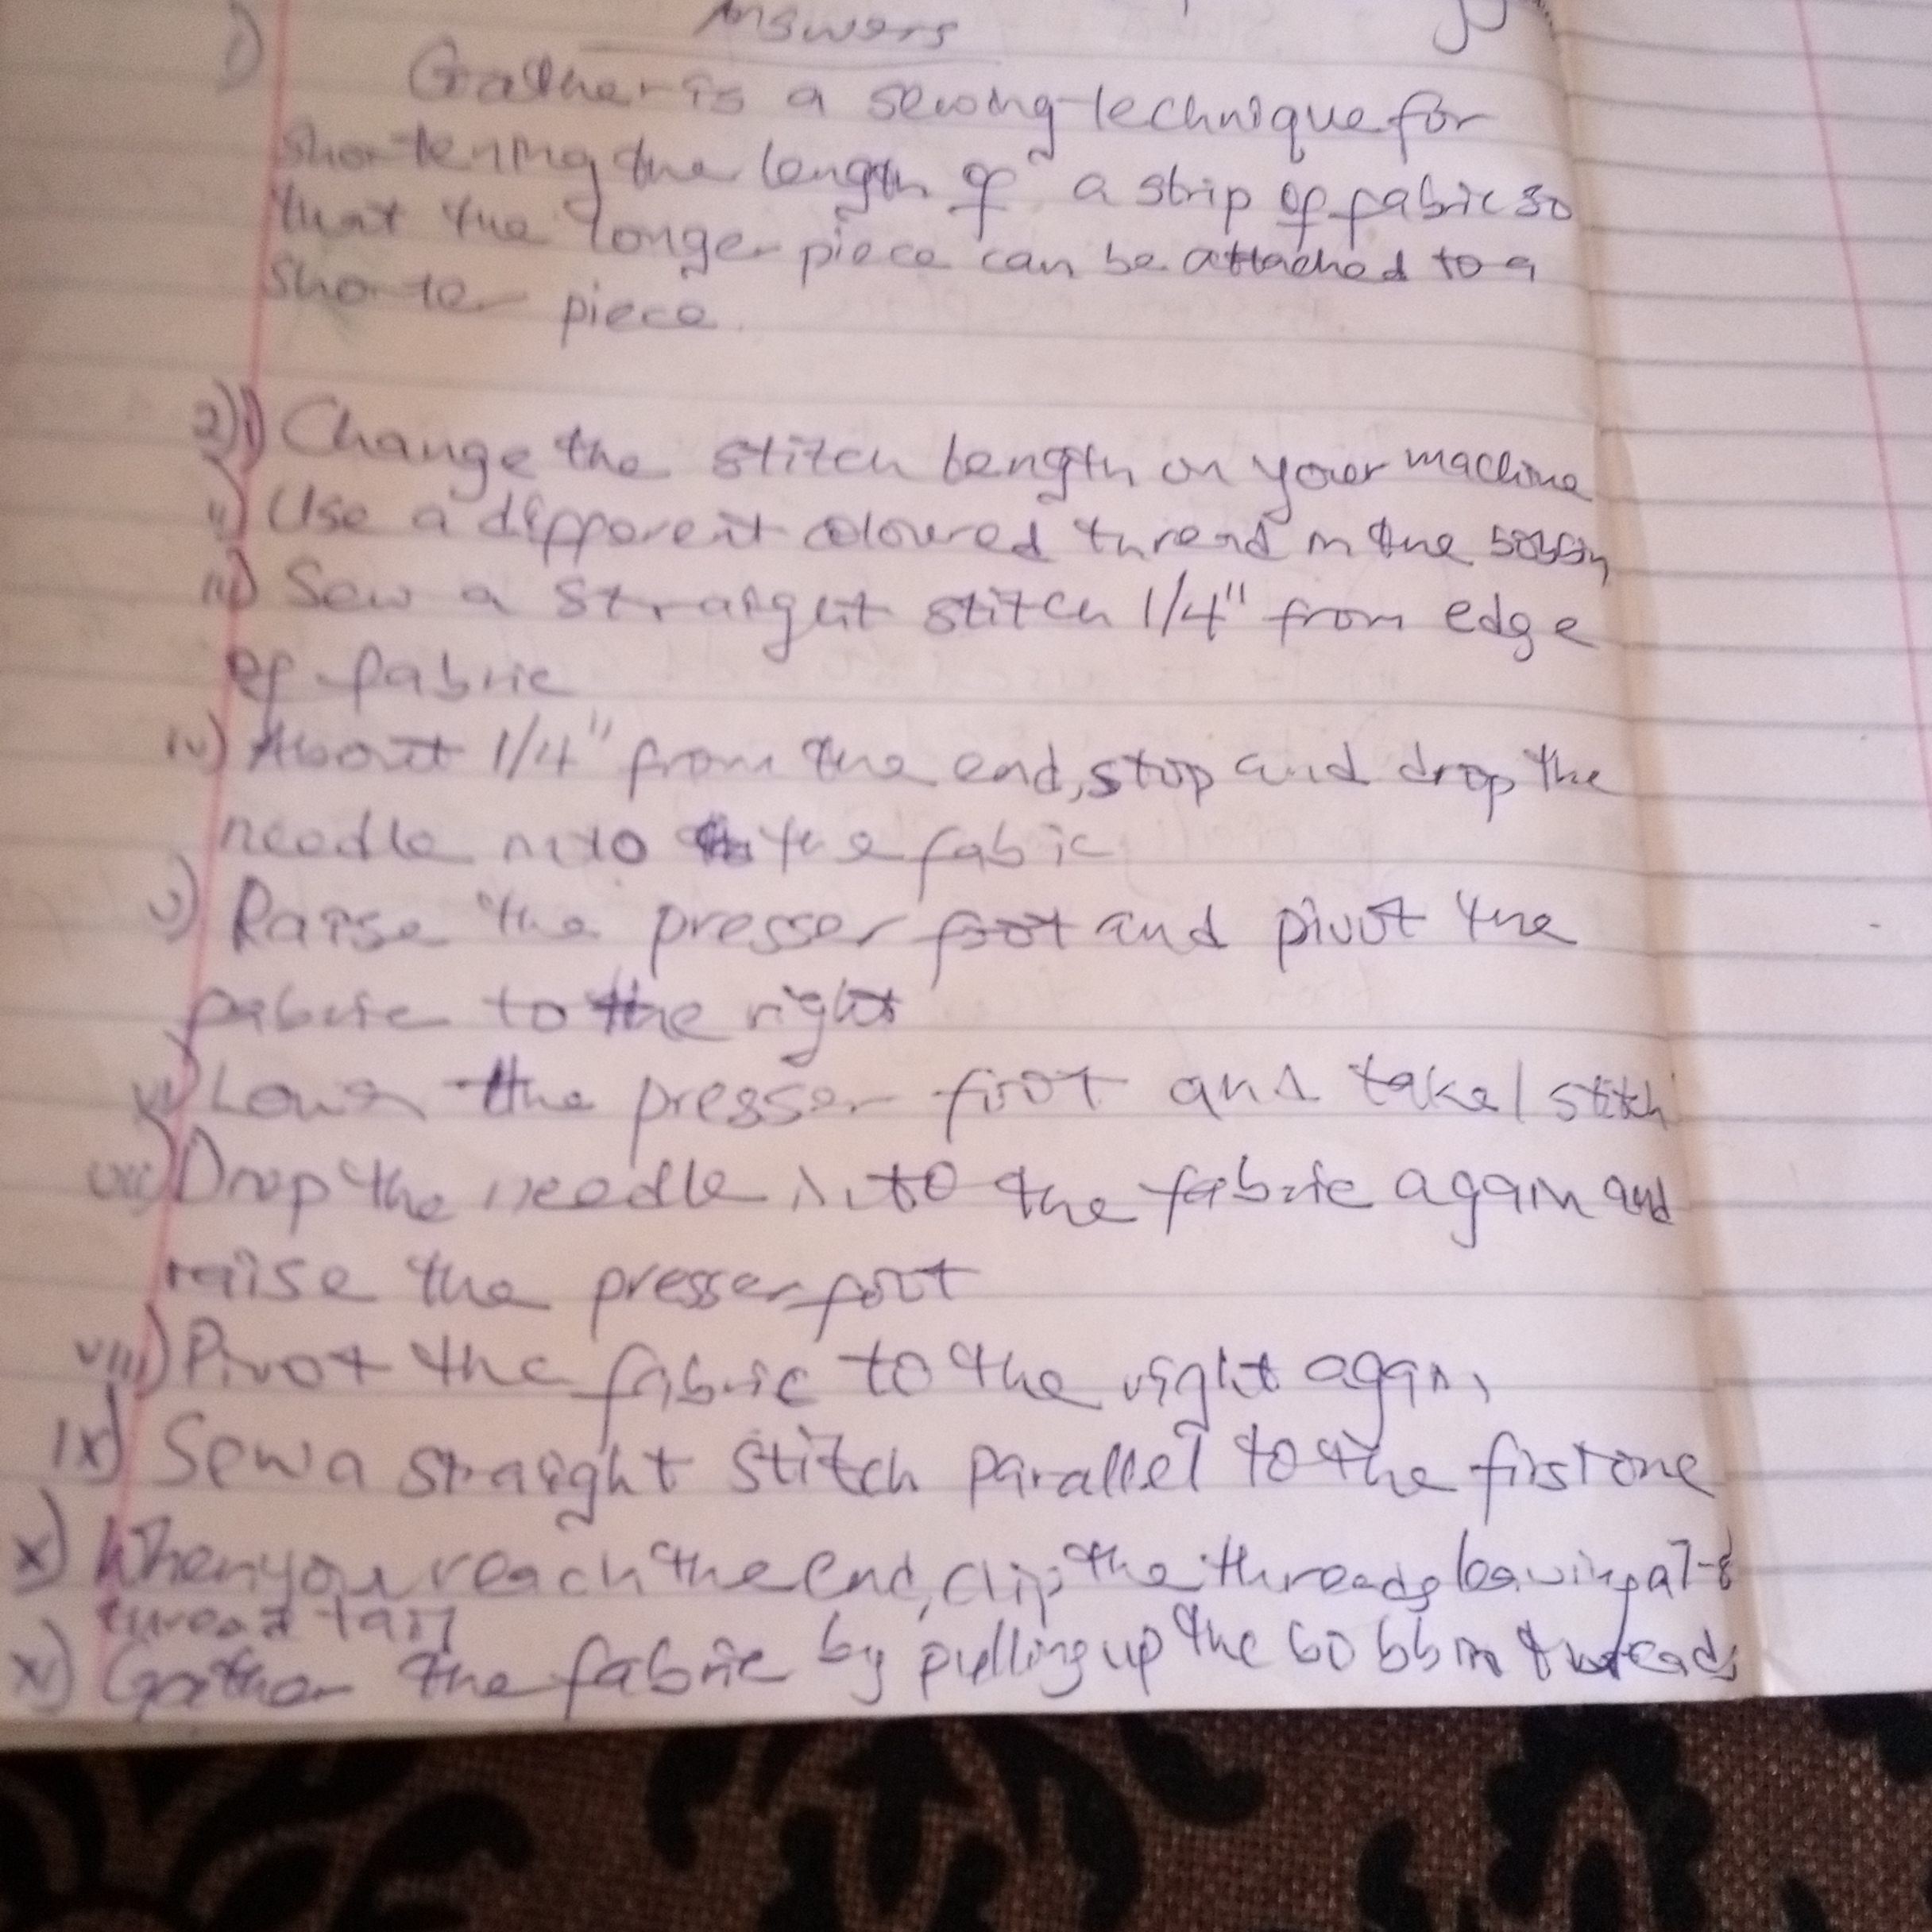 Answers
1) Gather is a sewing technique for
shortening the length of a strip of fabric so
that the longer piece can be attached to a
shorter piece.
2) i) Change the stitch length on your machine
ii) Use a different coloured thread in the bobbin
iii) Sew a straight stitch 1/4" from edge
of fabric
iv) About 1/4" from the end, stop and drop the
needle into the fabic
v) Raise the presser foot and pivot the
fabric to the right
vi) Lower the presser foot and take 1 stitch
vii) Drop the needle into the fabric again and
raise the presser foot
viii) Pivot the fabric to the right again
ix) Sew a straight stitch parallel to the first one
x) When you reach the end, clip the threads leaving a 7-8
thread tail
xi) Gather the fabric by pulling up the bobbin threads